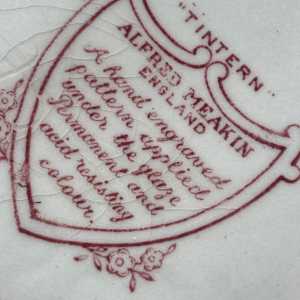 "TINTERN"
ALFRED MEAKIN
ENGLAND
A hand engraved
pattern applied
under the glaze
Permanent and
acid resisting
colour.